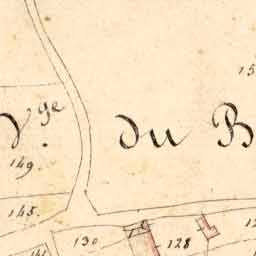 15
Vge du B
149.
145.
130
128
12
141